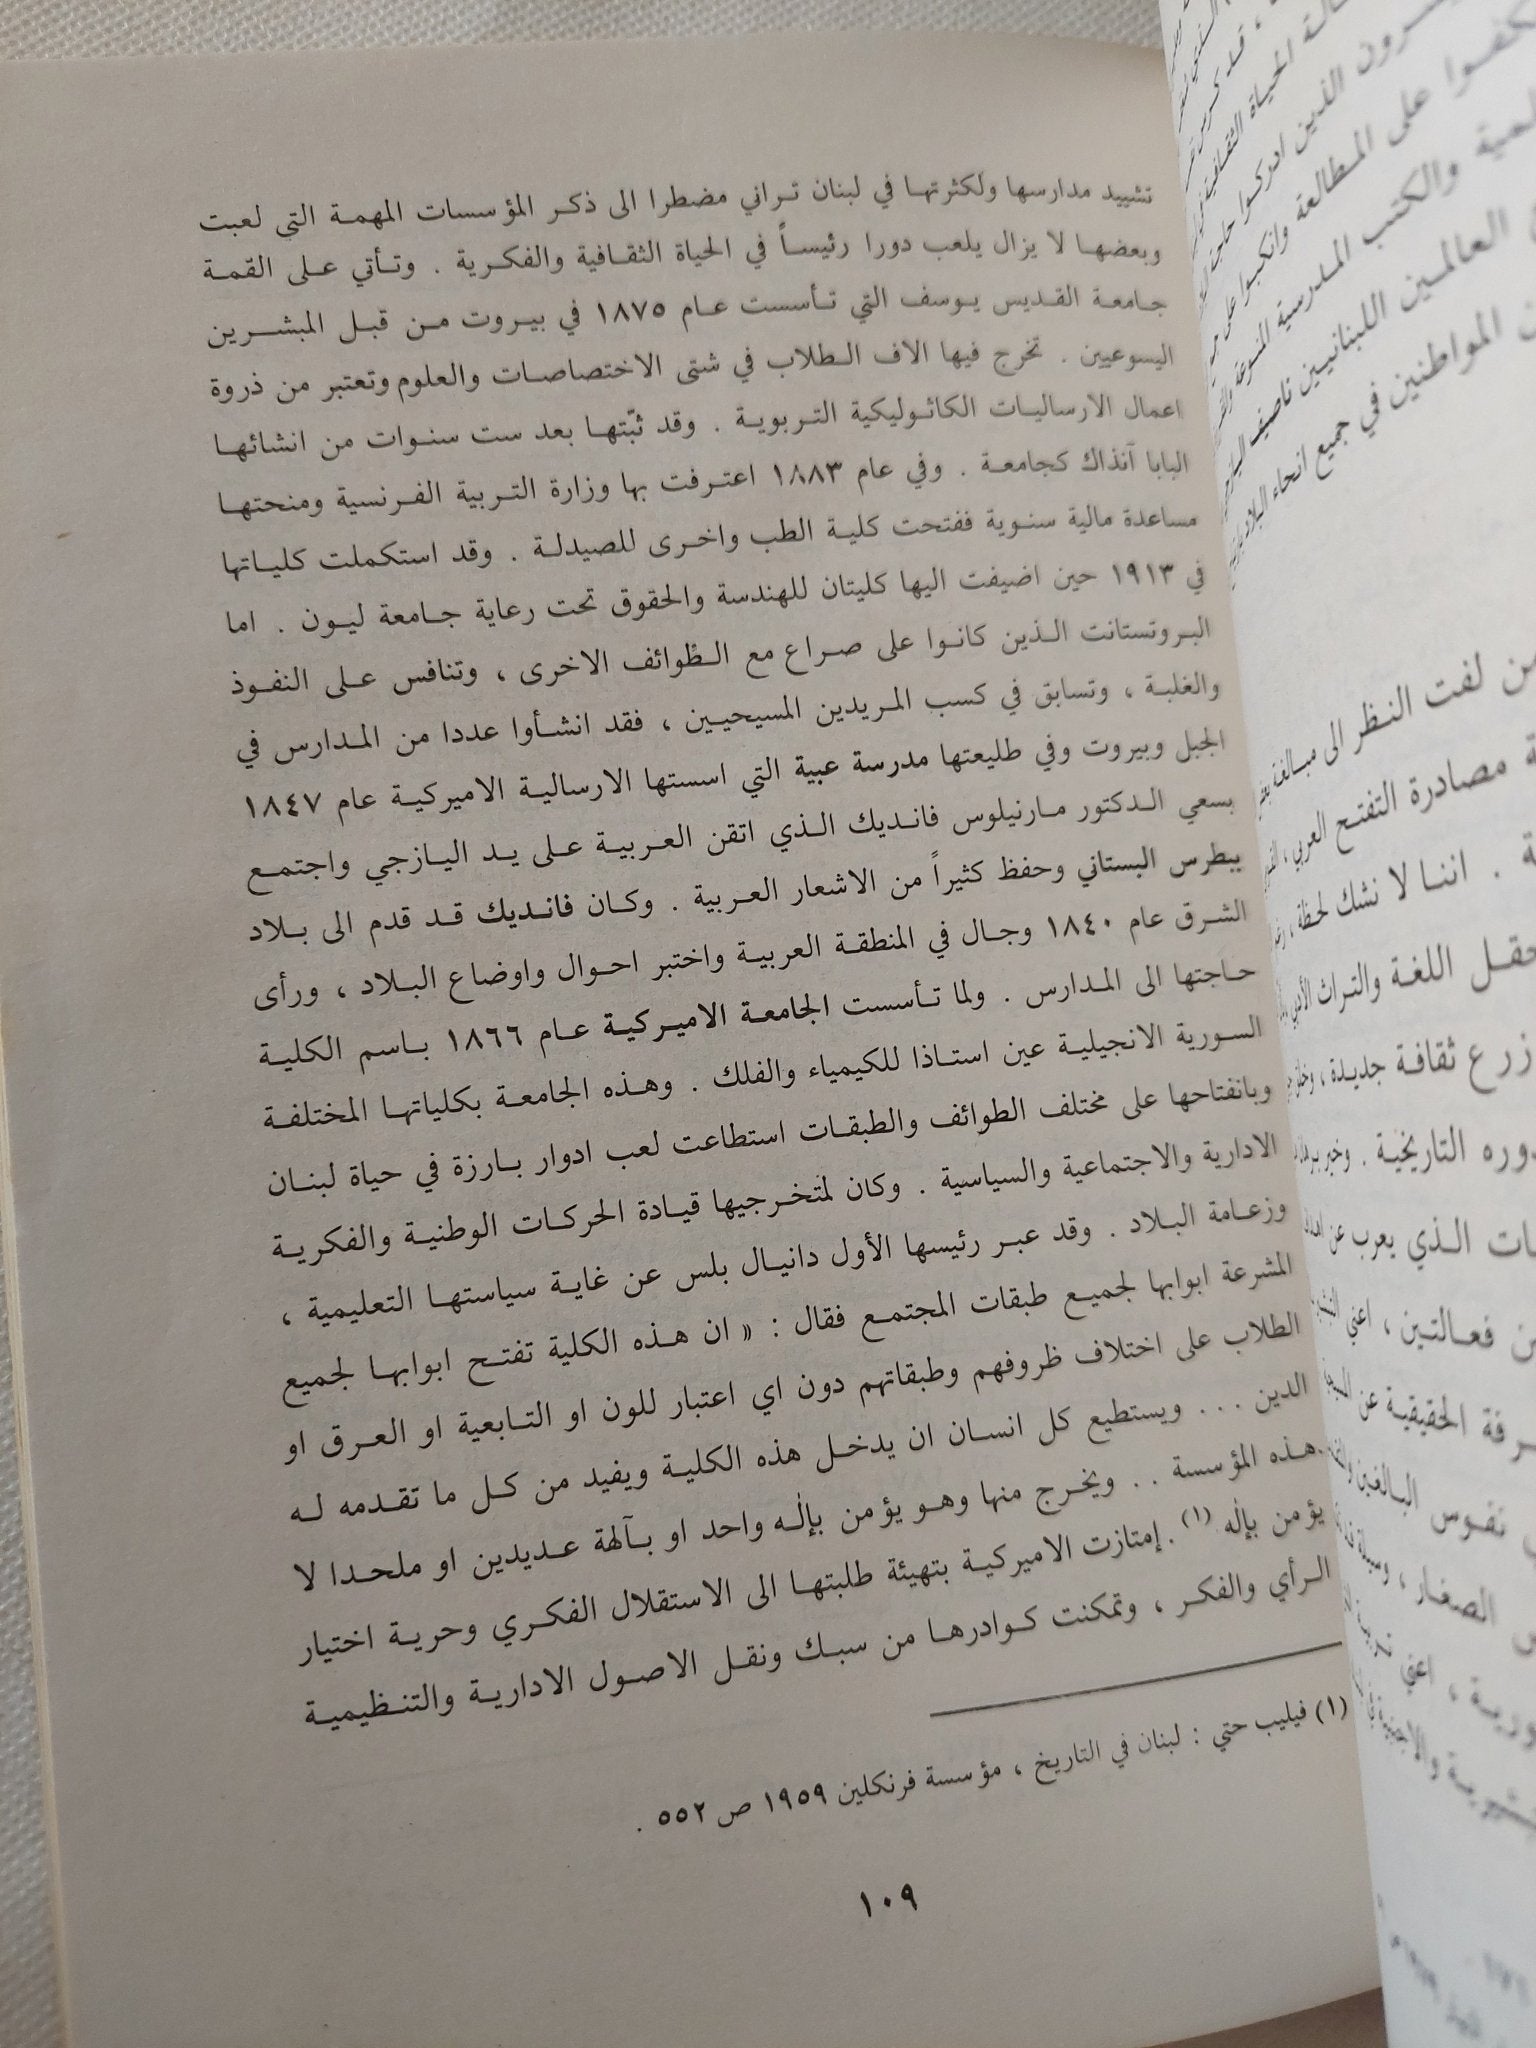 تشييد مدارسها ولكثرتها في لبنان تراني مضطرا الى ذكر المؤسسات المهمة التي لعبت
وبعضها لا يزال يلعب دورا رئيساً في الحياة الثقافية والفكرية . وتأتي على القمة
جامعة القديس يوسف التي تأسست عام ١٨٧٥ في بيروت من قبل المبشرين
اليسوعيين . تخرج فيها الاف الطلاب في شتى الاختصاصات والعلوم وتعتبر من ذروة
اعمال الارساليات الكاثوليكية التربوية . وقد ثبّتها بعد ست سنوات من انشائها
البابا آنذاك كجامعة . وفي عام ١٨٨٣ اعترفت بها وزارة التربية الفرنسية ومنحتها
مساعدة مالية سنوية ففتحت كلية الطب واخرى للصيدلة . وقد استكملت كلياتها
في ١٩١٣ حين اضيفت اليها كليتان للهندسة والحقوق تحت رعاية جامعة ليون . اما
البروتستانت الذين كانوا على صراع مع الطوائف الاخرى ، وتنافس على النفوذ
والغلبة ، وتسابق في كسب المريدين المسيحيين ، فقد انشأوا عددا من المدارس في
الجبل وبيروت وفي طليعتها مدرسة عبية التي اسستها الارسالية الاميركية عام ١٨٤٧
بسعي الدكتور مارنيلوس فانديك الذي اتقن العربية على يد اليازجي واجتمع
ببطرس البستاني وحفظ كثيراً من الاشعار العربية . وكان فانديك قد قدم الى بلاد
الشرق عام ١٨٤٠ وجال في المنطقة العربية واختبر احوال واوضاع البلاد ، ورأى
حاجتها الى المدارس . ولما تأسست الجامعة الاميركية عام ١٨٦٦ باسم الكلية
السورية الانجيلية عين استاذا للكيمياء والفلك . وهذه الجامعة بكلياتها المختلفة
وبانفتاحها على مختلف الطوائف والطبقات استطاعت لعب ادوار بارزة في حياة لبنان
الادارية والاجتماعية والسياسية . وكان لمتخرجيها قيادة الحركات الوطنية والفكرية
وزعامة البلاد . وقد عبر رئيسها الأول دانيال بلس عن غاية سياستها التعليمية ،
المشرعة ابوابها لجميع طبقات المجتمع فقال : « ان هذه الكلية تفتح ابوابها لجميع
الطلاب على اختلاف ظروفهم وطبقاتهم دون اي اعتبار للون او التابعية او العرق او
الدين ... ويستطيع كل انسان ان يدخل هذه الكلية ويفيد من كل ما تقدمه له
هذه المؤسسة .. ويخرج منها وهو يؤمن بإلٰه واحد او بآلهة عديدين او ملحدا لا
يؤمن بإلٰه (١) . إمتازت الاميركية بتهيئة طلبتها الى الاستقلال الفكري وحرية اختيار
الرأي والفكر ، وتمكنت كوادرها من سبك ونقل الاصول الادارية والتنظيمية
(١) فيليب حتي : لبنان في التاريخ ، مؤسسة فرنكلين ١٩٥٩ ص ٥٥٢ .
١٠٩
الحياة الثقافية
رون الذين ادركوا
كفوا على المطالعة وانكبوا على
والكتب المدرسية المنوعة
العالمين اللبنانيين ناصيف
المواطنين في جميع انحاء البلاد
من لفت النظر الى مبالغة
مصادرة التفتح العربي ،
. اننا لا نشك لحظة ،
حقل اللغة والتراث الأدبي
زرع ثقافة جديدة ،
دوره التاريخية .
الذي يعرب عن
فعالتين ، اعني
رفة الحقيقية عن
نفوس البالغين
الصغار ،